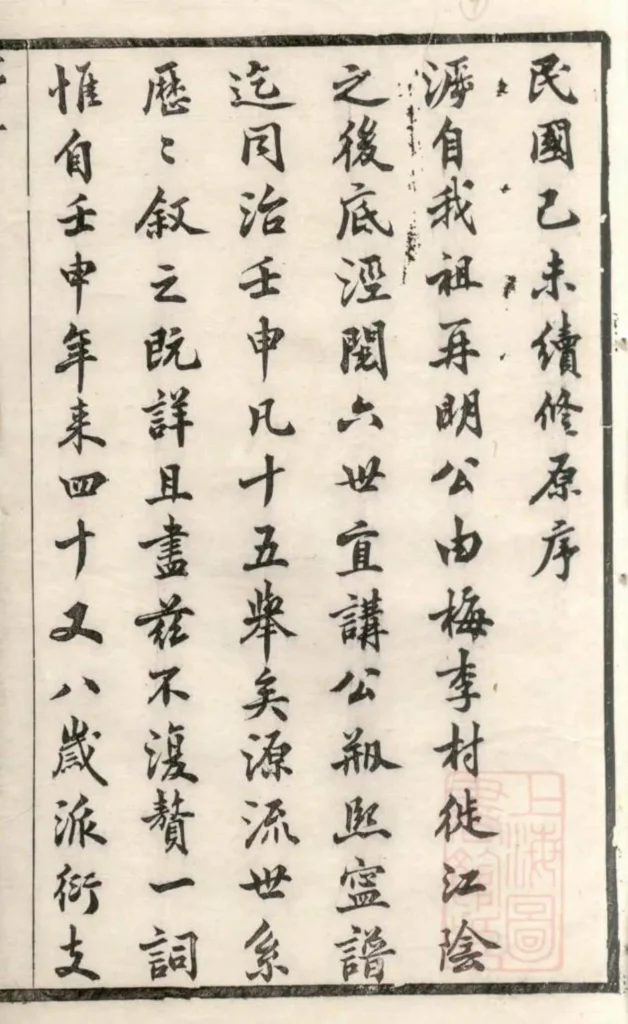 民國己未續修原序
溯自我祖再明公由梅李村徙江陰
之後底涇閱六世直講公刱熙寧譜
迄同治壬申凡十五舉矣源流世系
歷〻叙之既詳且盡茲不復贅一詞
惟自壬申年来四十又八歲派衍支
上海圖
書館藏